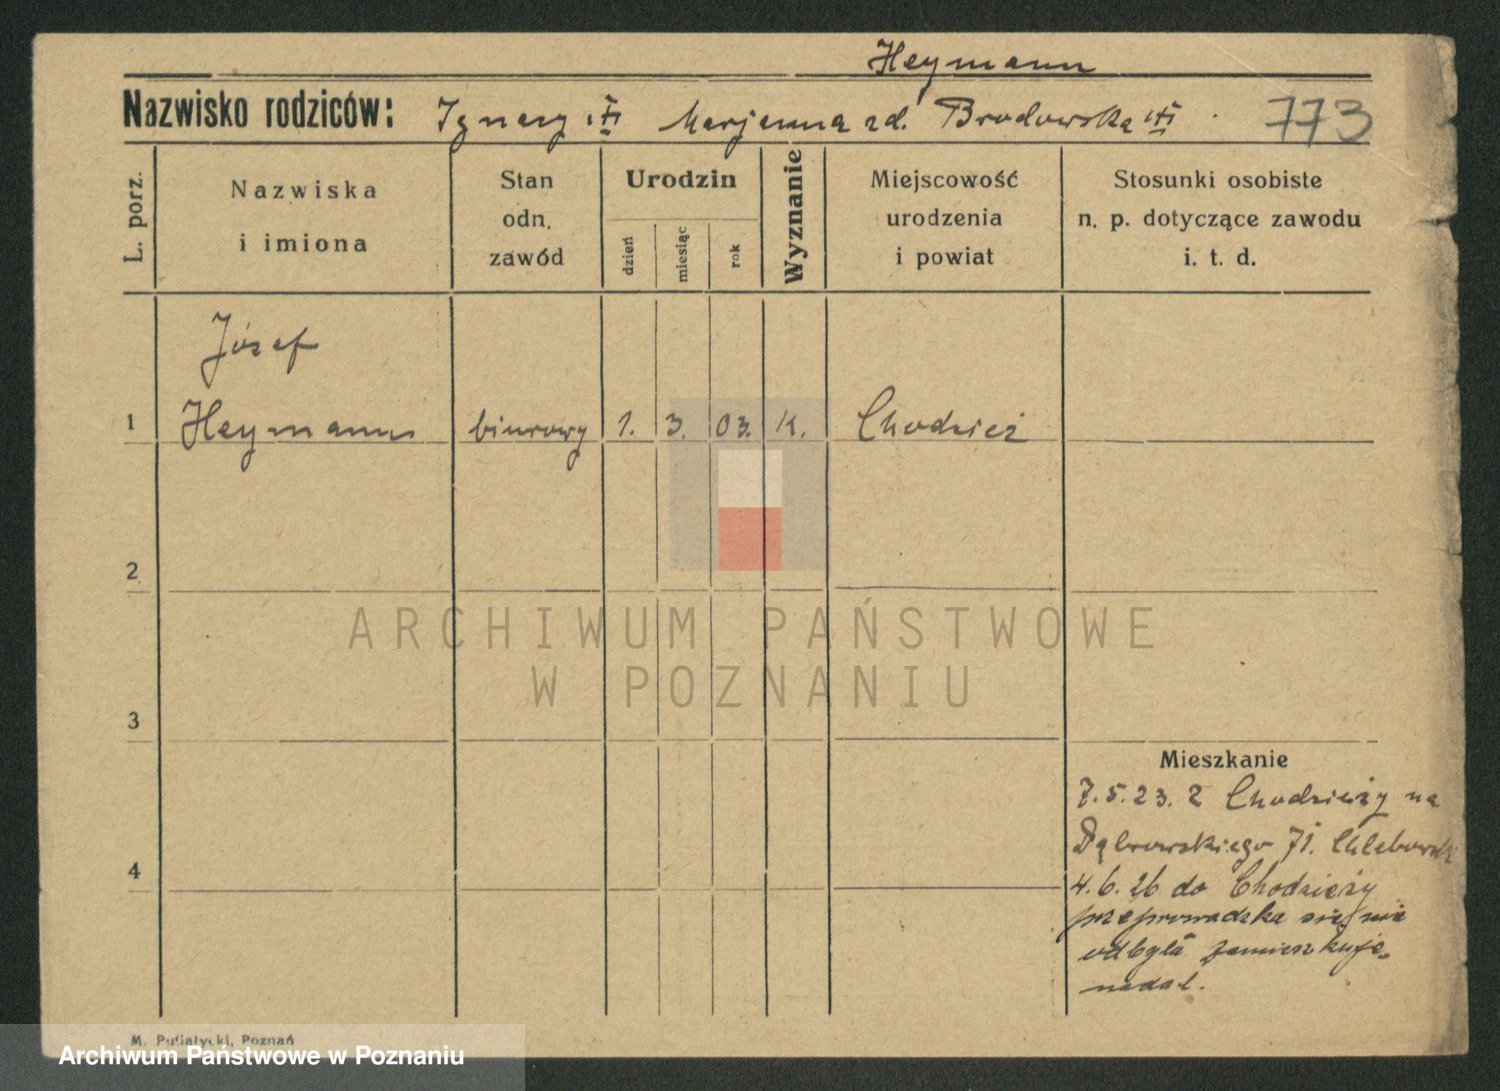 Heymann
Nazwisko rodziców: Ignacy Marjanna zd. Brodowska 773
L. porz.
Nazwiska
i imiona
Stan
odn.
zawód
Urodzin
dzień
miesiąc
rok
Wyznanie
Miejscowość
urodzenia
i powiat
Stosunki osobiste
n. p. dotyczące zawodu
i. t. d.
Józef
1 Heymann biurowy 1. 3. 03. K. Chodzież
2
ARCHIWUM PAŃSTWOWE
W POZNANIU
3
Mieszkanie
7.5.23. z Chodzieży na
Dąbrowskiego 71.
4
4.6.26 do Chodzieży
przeprowadzka się nie
odbyła zamieszkuje
nadal.
M. Putiatycki, Poznań
Archiwum Państwowe w Poznaniu